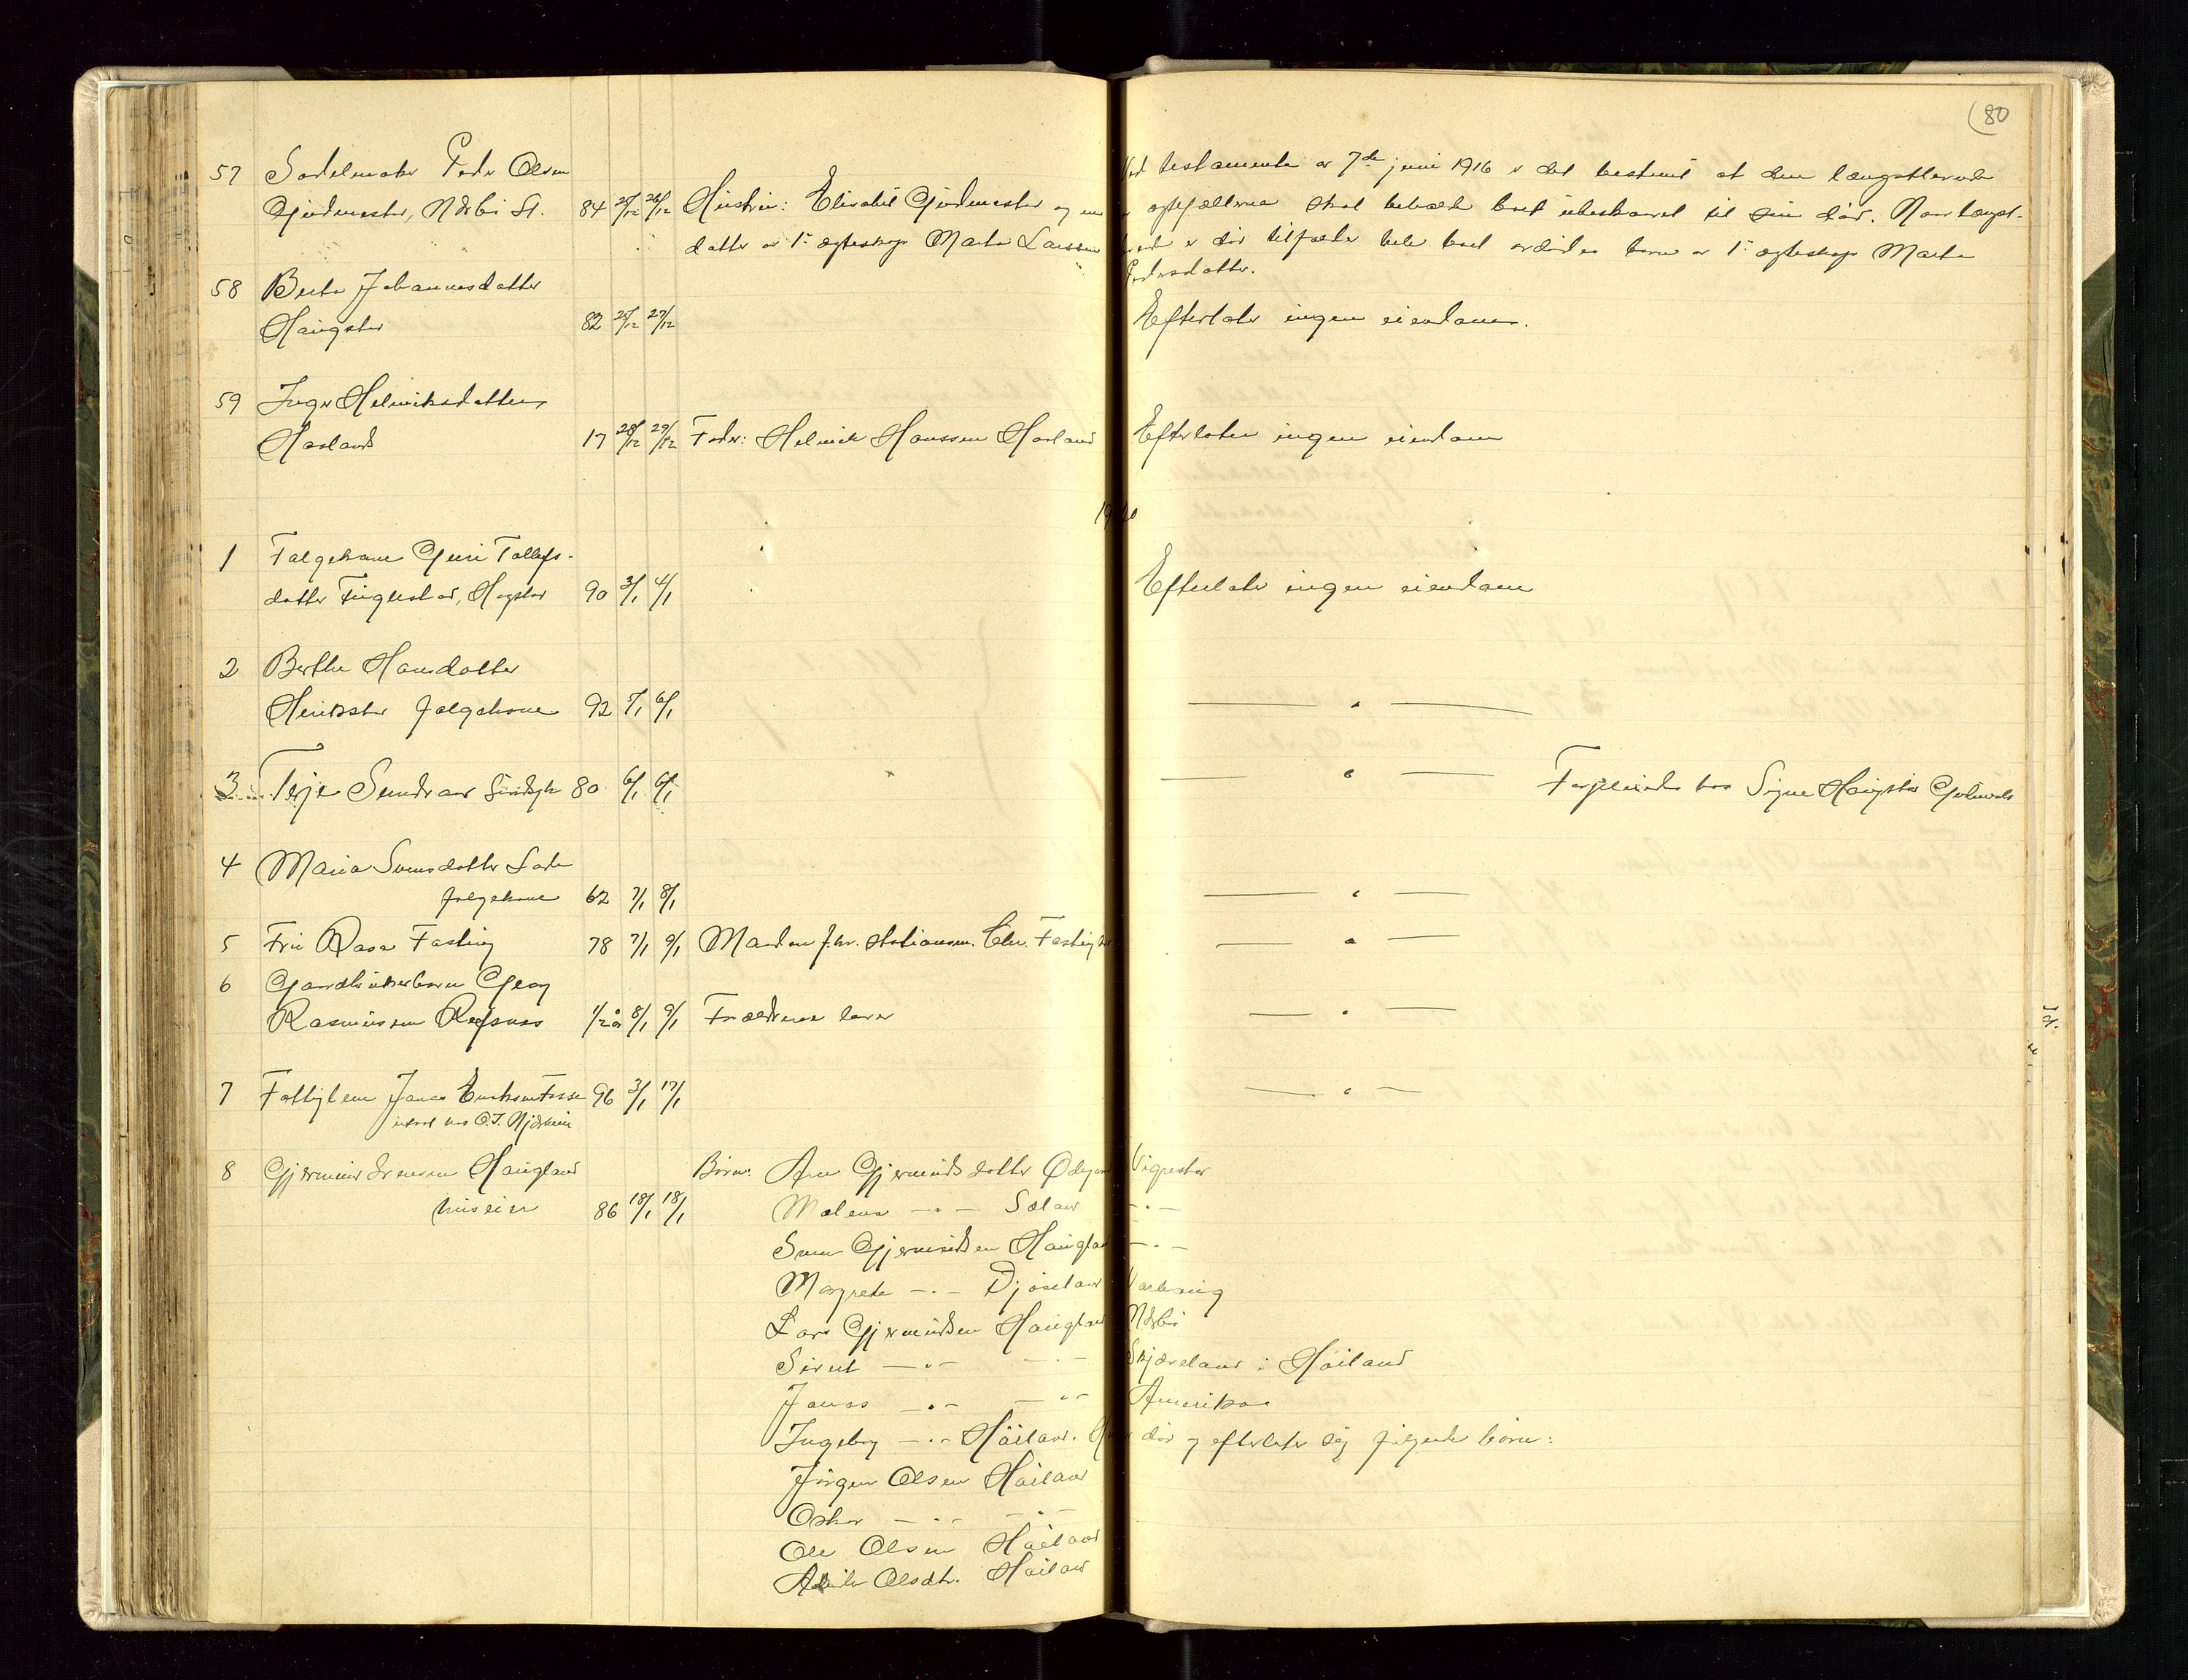 (80
57 Sadelmaker Peder Olsen
Gjedrester, Nærbø St. 84 25/12 26/12 Hustru: Elisabet og en
datter av 1ste egteskap Marta Larssen
Ved testamente av 7de juni 1916 er det bestemt at den længstlevende
av egtefællerne skal beholde boet ubeskaaret til sin død. Naar længst-
levende er død tilfalder hele boet avdødes barn av 1ste egteskap Marta
Pedersdatter.
58 Berta Johannesdatter
Haugstad 82 25/12 27/12 Efterlater ingen eiendom.
59 Inger Helmiksdatter
Haaland 17 28/12 29/12 Fader: Helmik Hanssen Haaland Efterlater ingen eiendom
1920
1 Følgekone Guri Tollefs-
datter Tuglestad, Hogstad 90 3/1 4/1 Efterlater ingen eiendom
2 Berthe Hansdatter
følgekone 92 5/1 6/1 — " —
3 Terje Sundvor 80 6/1 6/1 — " — Forpleiedes hos Signe Haugstad
4 Maria Svensdatter Lode
følgekone 62 7/1 8/1 — " —
5 Fru Rasa Fasting 78 7/1 9/1 Manden fhv. stationsm. Chr. Fasting — " —
6 Gaardbrukerbarn Georg
Rasmussen Refsnes 1/2 år 8/1 9/1 Forældrene lever — " —
7 Fattiglem Jonas Fosse 96 3/1 17/1 — " —
indsat hos O.T. Njærheim
8 Gjermund Svensen Haugland Børn: Ane Gjermundsdatter Ødegaard Vigrestad
huseier 86 18/1 18/1 Malena — " — Søland — " —
Sven Gjermundsen Haugland — " —
Margrete — " — Djøseland Varhaug
Lars Gjermundsen Haugland Nærbø
Sivert — " — — " — Skjæveland i Høiland
Jonas — " — — " — Amerika
Ingeborg — " — Høiland. Hun er død og efterlater sig følgende børn:
Jørgen Olsen Høiland
Oskar — " — — " —
Ole Olsen Høiland
Olsdtr. Høiland